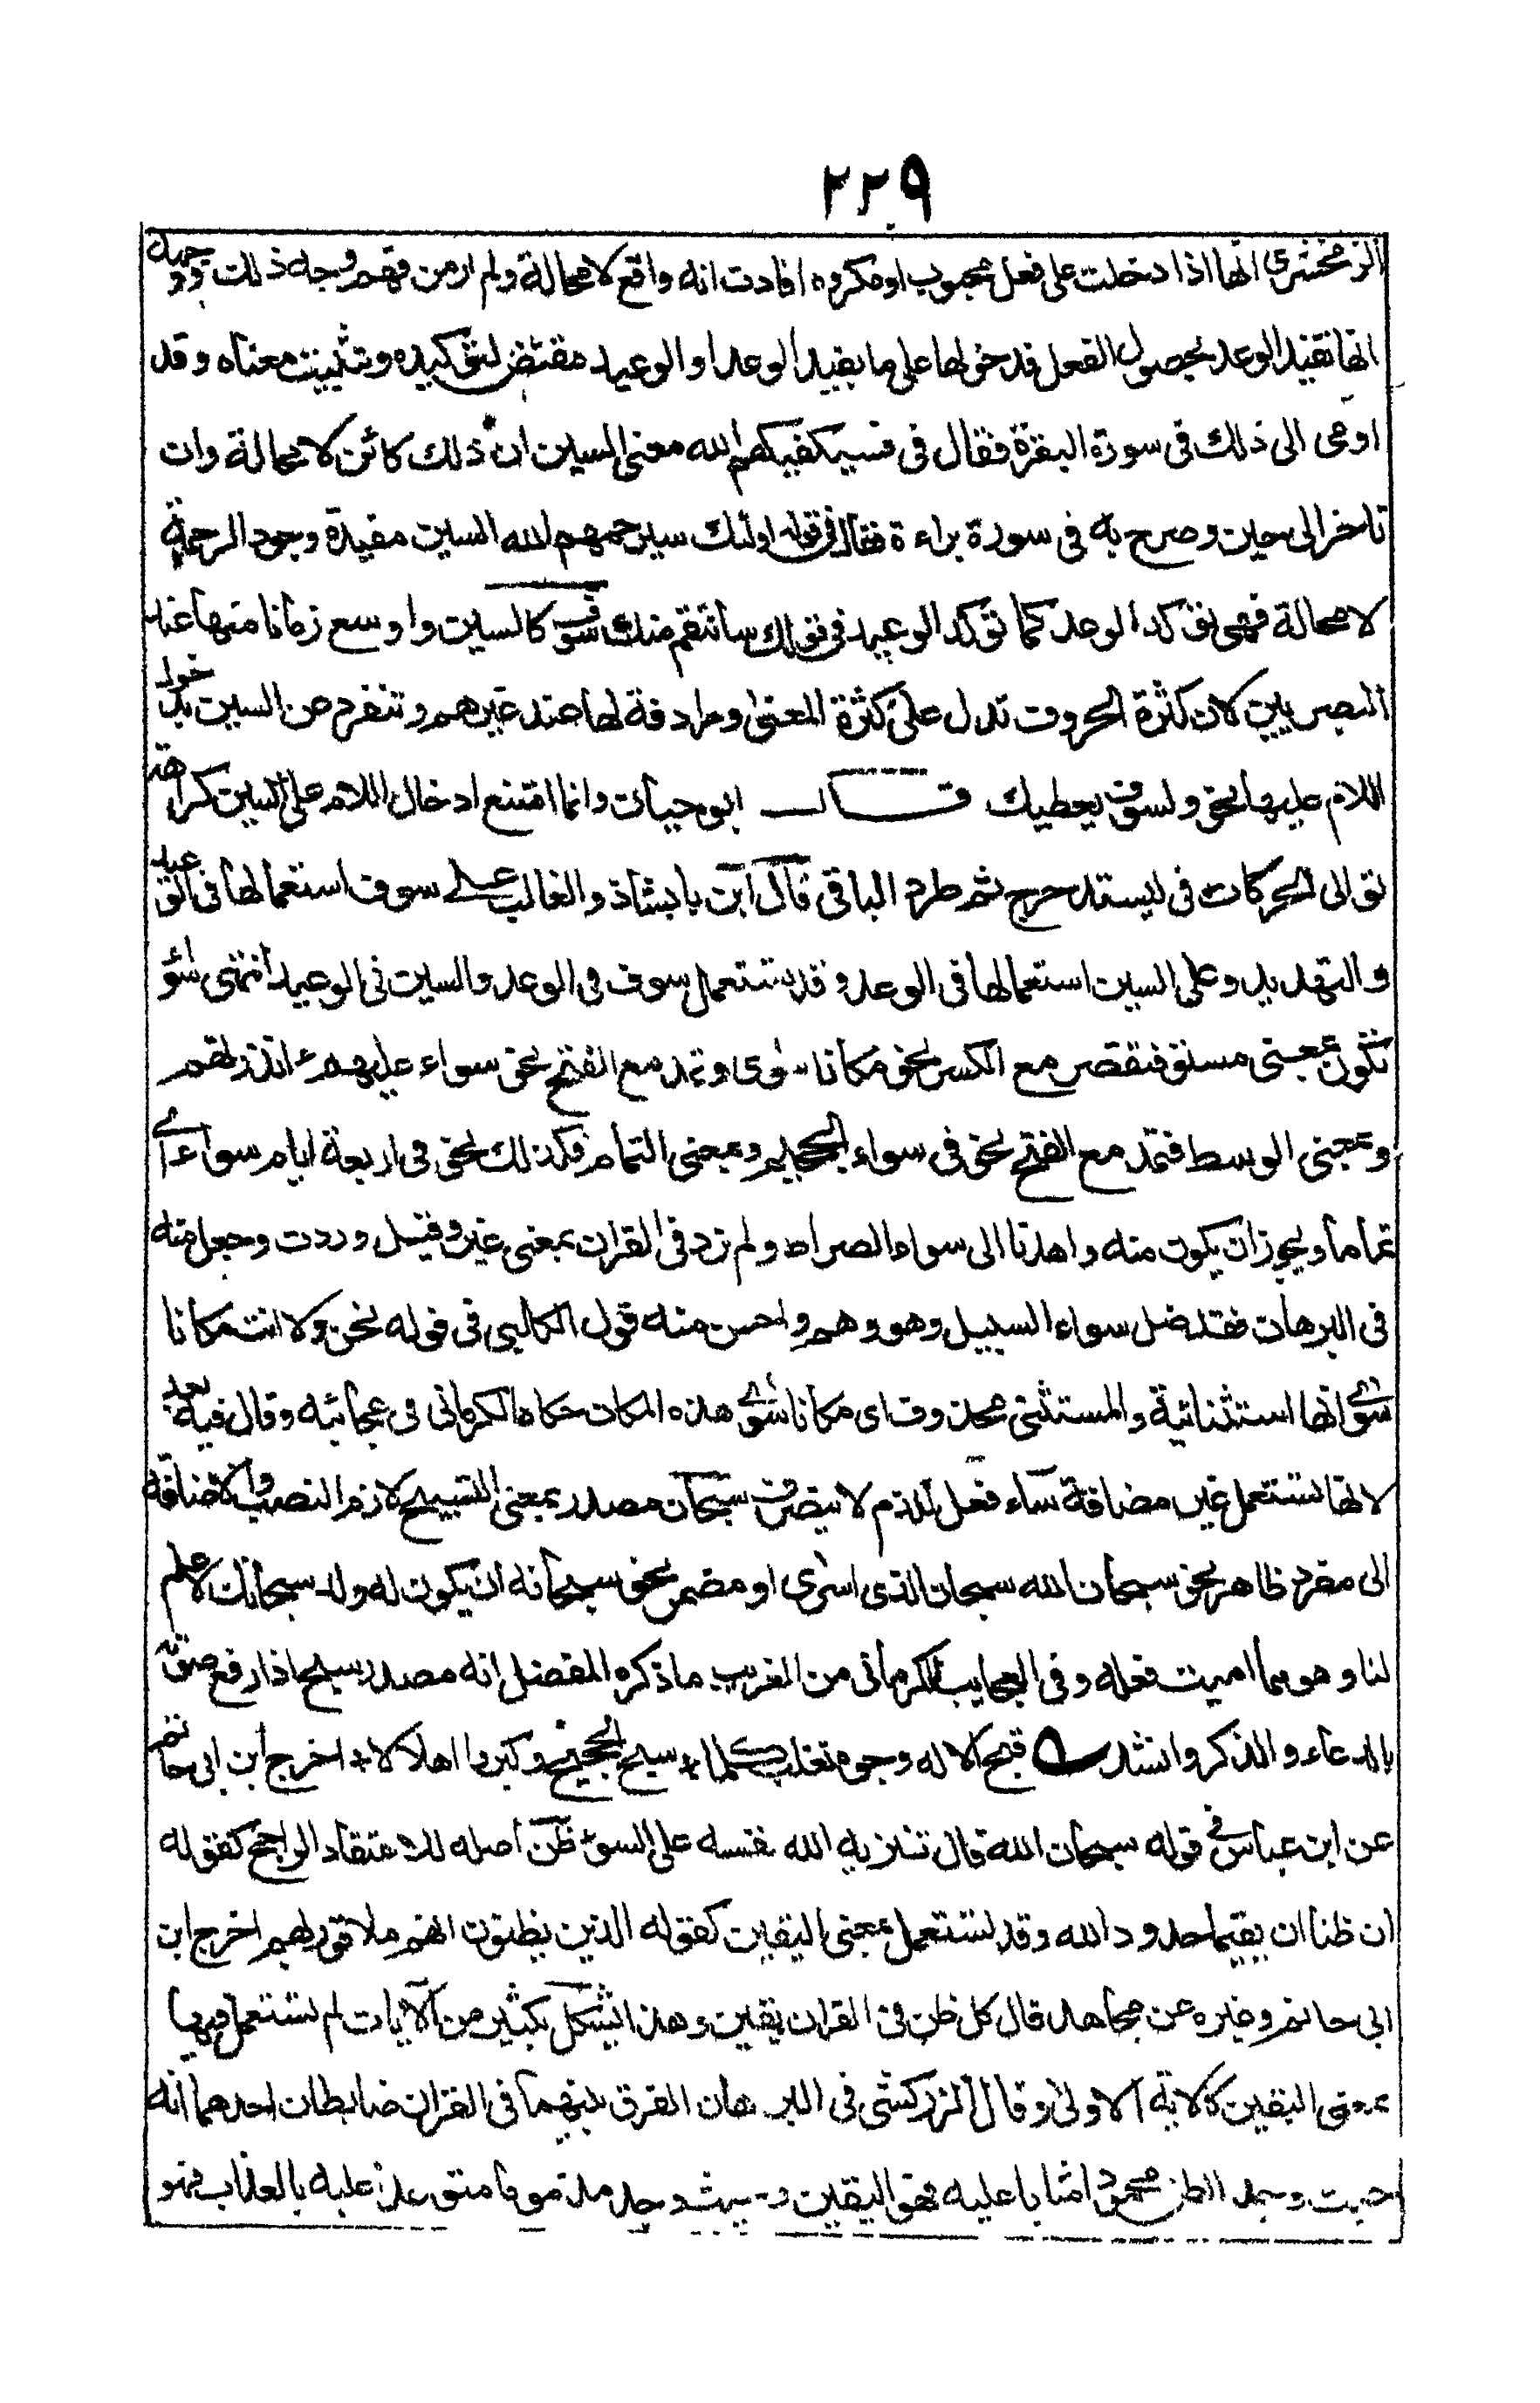 ٢٢٩
الزمخشرى انها اذا دخلت على فعل محبوب او مكروه افادت انه واقع لا محالة ولم ار من فهم وجه ذلك ووجهه
انها تفيد الوعد بحصول الفعل فدخولها على ما يفيد الوعد او الوعيد مقتض لتوكيده وتثبيت معناه وقد
اومى الى ذلك فى سورة البقرة فقال فى فسيكفيكهم الله معنى السين ان ذلك كائن لا محالة وان
تاخر الى حين وصرح به فى سورة براءة فقال فى قوله اولئك سيرحمهم الله السين مفيدة وجود الرحمة
لا محالة فهى توكد الوعد كما توكد الوعيد فى قولك سانتقم منك سوف كالسين واوسع زمانا منها عند
البصريين لان كثرة الحروف تدل على كثرة المعنى ومرادفة لها عند غيرهم وتنفرد عن السين بدخول
اللام عليها نحو ولسوف يعطيك قال ابوحيان وانما امتنع ادخال اللام على السين كراهة
توالى الحركات فى ليستدحرج ثم طرد الباقى قال ابن بابشاذ والغالب على سوف استعمالها فى الوعيد
والتهديد وعلى السين استعمالها فى الوعد وقد يستعمل سوف فى الوعد والسين فى الوعيد انتهى سواء
تكون بمعنى مستو فتقصر مع الكسر نحو مكانا سوى وتمد مع الفتح نحو سواء عليهم ءانذرتهم
وبمعنى الوسط فتمد مع الفتح نحو فى سواء الجحيم وبمعنى التمام فكذلك نحو فى اربعة ايام سواء اى
تماما ويجوز ان يكون منه واهدنا الى سواء الصراط ولم ترد فى القران بمعنى غير وقيل وردت وجعل منه
فى البرهان فقد ضل سواء السبيل وهو وهم واحسن منه قول الكلبى فى قوله نحن ولا انت مكانا
سوى انها استثنائية والمستثنى محذوف اى مكانا سوى هذه المكان حكاه الكرمانى فى عجائبه وقال فيه بعد
لانها لا تستعمل غير مضافة ساء فعل للذم لا يتصرف سبحان مصدر بمعنى التسبيح لازم النصب والاضافة
الى مفرد ظاهر نحو سبحان الله سبحان الذى اسرى او مضمر نحو سبحانه ان يكون له ولد سبحانك لا علم
لنا وهو مما اميت فعله وفى العجايب للكرمانى من الغريب ما ذكره المفضل انه مصدر سبح اذا رفع صوته
بالدعاء والذكر وانشد قبح الاله وجوه تغلب كلما سبح الحجيج وكبروا اهلالا اخرج ابن ابى حاتم
عن ابن عباس فى قوله سبحان الله قال تنزيه الله نفسه على السوء ظن اصله للاعتقاد الراجح كقوله
ان ظنا ان يقيما حدود الله وقد تستعمل بمعنى اليقين كقوله الذين يظنون انهم ملاقو ربهم اخرج ابن
ابى حاتم وغيره عن مجاهد قال كل ظن فى القران يقين وهذا يشكل بكثير من الآيات لم تستعمل فيها
بمعنى اليقين كالاية الاولى وقال الزركشى فى البرهان الفرق بينهما فى القران ضابطان احدهما انه
حيث وجد الظن محمودا مثابا عليه فهو اليقين وحيث وجد مذموما متوعدا عليه بالعذاب فهو